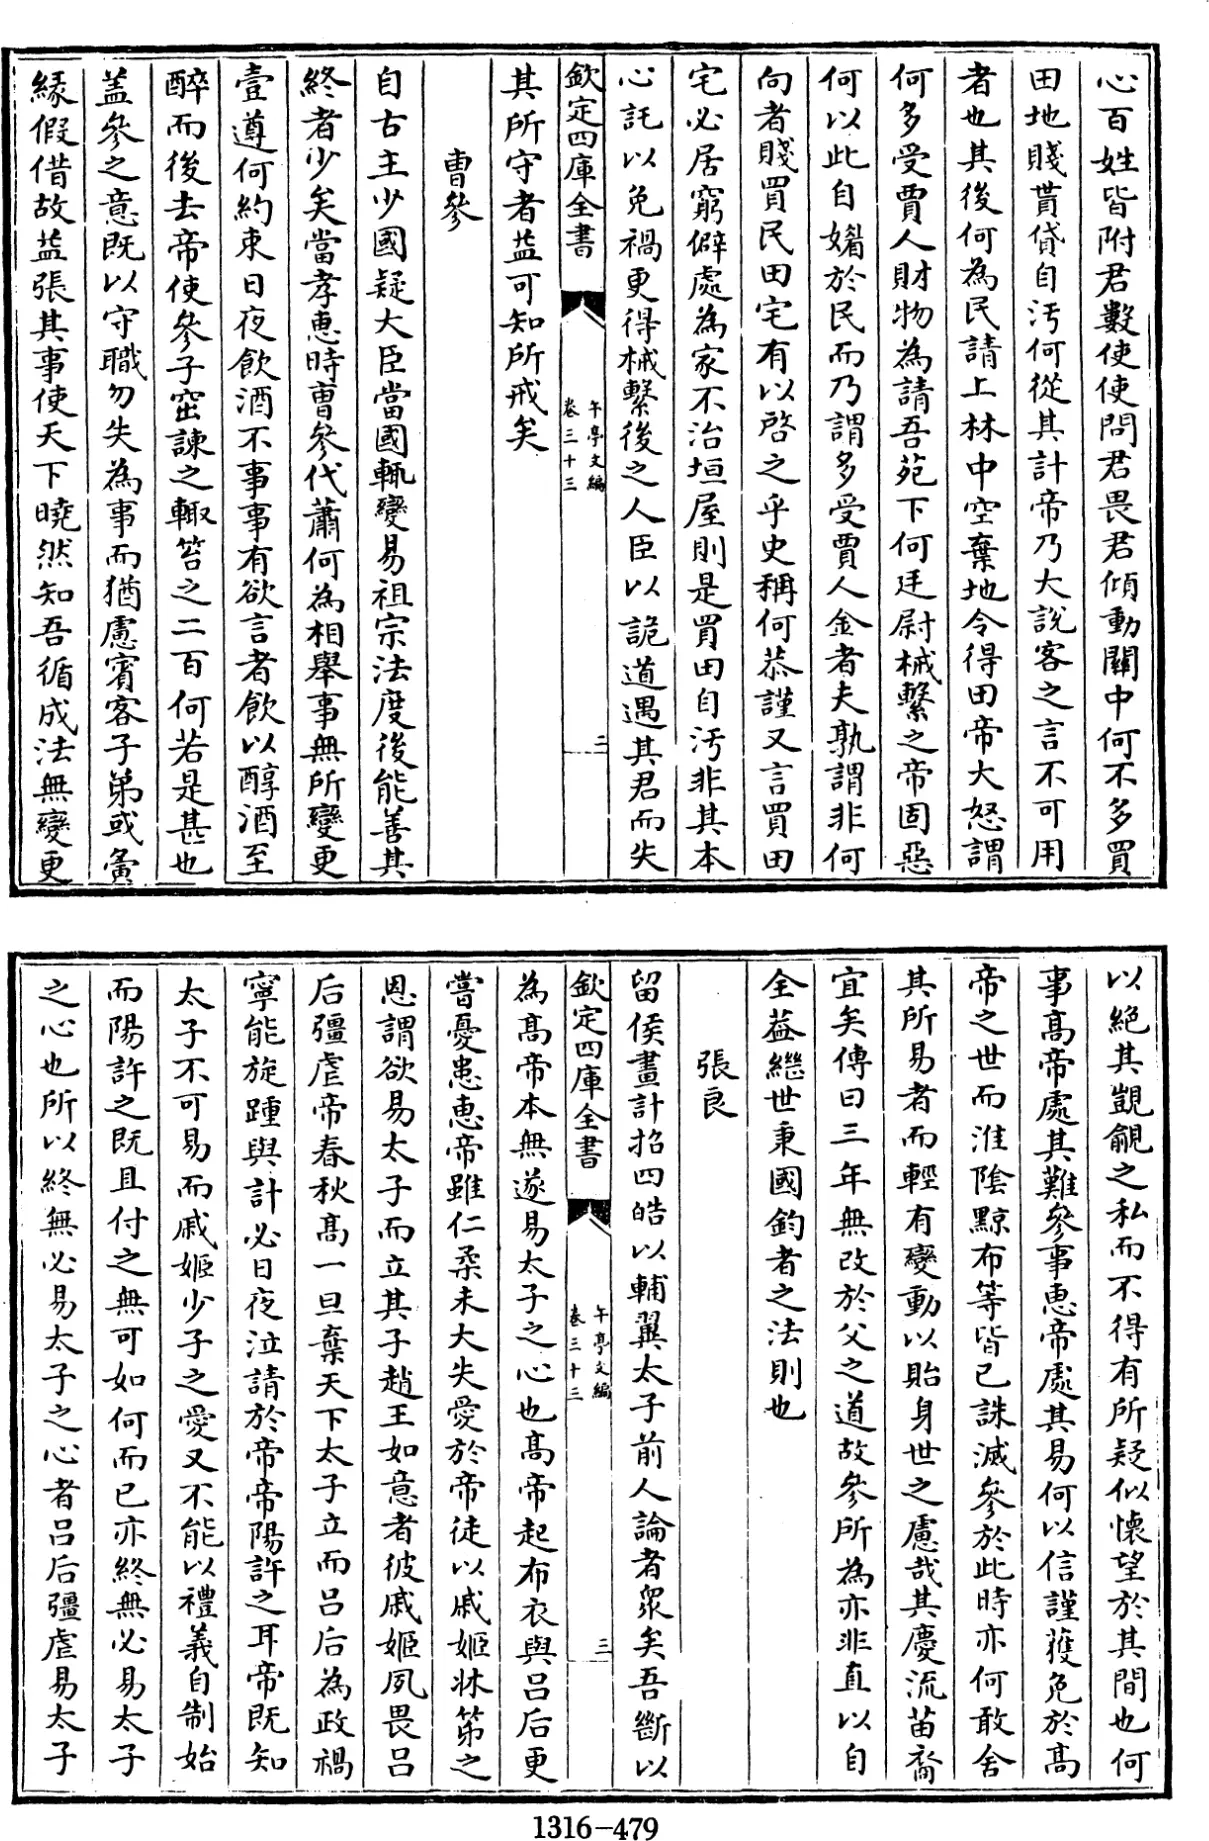 心百姓皆附君數使使問君畏君傾動關中何不多買
田地賤貰貸自汚何從其計帝乃大説客之言不可用
者也其後何為民請上林中空棄地令得田帝大怒謂
何多受賈人財物為請吾苑下何廷尉械繫之帝固惡
何以此自媚於民而乃謂多受賈人金者夫孰謂非何
向者賤買民田宅有以啓之乎史稱何恭謹又言買田
宅必居窮僻處為家不治垣屋則是買田自汚非其本
心託以免禍更得械繫後之人臣以詭道遇其君而失
欽定四庫全書
午亭文編
卷三十三
二
其所守者益可知所戒矣
曹參
自古主少國疑大臣當國輒變易祖宗法度後能善其
終者少矣當孝惠時曹參代蕭何為相舉事無所變更
壹遵何約束日夜飲酒不事事有欲言者飲以醇酒至
醉而後去帝使參子窋諫之輙笞之二百何若是甚也
盖參之意既以守職勿失為事而猶慮賓客子弟或夤
縁假借故益張其事使天下曉然知吾循成法無變更
以絶其覬覦之私而不得有所疑似懐望於其間也何
事髙帝處其難參事惠帝處其易何以信謹獲免於髙
帝之世而淮陰黥布等皆已誅滅參於此時亦何敢舍
其所易者而輕有變動以貽身世之慮哉其慶流苗裔
宜矣傳曰三年無改於父之道故參所為亦非直以自
全葢繼世秉國鈞者之法則也
張良
留侯畫計招四皓以輔翼太子前人論者衆矣吾斷以
欽定四庫全書
午亭文編
卷三十三
三
為髙帝本無遂易太子之心也髙帝起布衣與呂后更
嘗憂患惠帝雖仁柔未大失愛於帝徒以戚姬牀笫之
恩謂欲易太子而立其子趙王如意者彼戚姬夙畏呂
后彊虐帝春秋髙一旦棄天下太子立而呂后為政禍
寧能旋踵與計必日夜泣請於帝帝陽許之耳帝既知
太子不可易而戚姬少子之愛又不能以禮義自制始
而陽許之既且付之無可如何而已亦終無必易太子
之心也所以終無必易太子之心者呂后彊虐易太子
1316-479